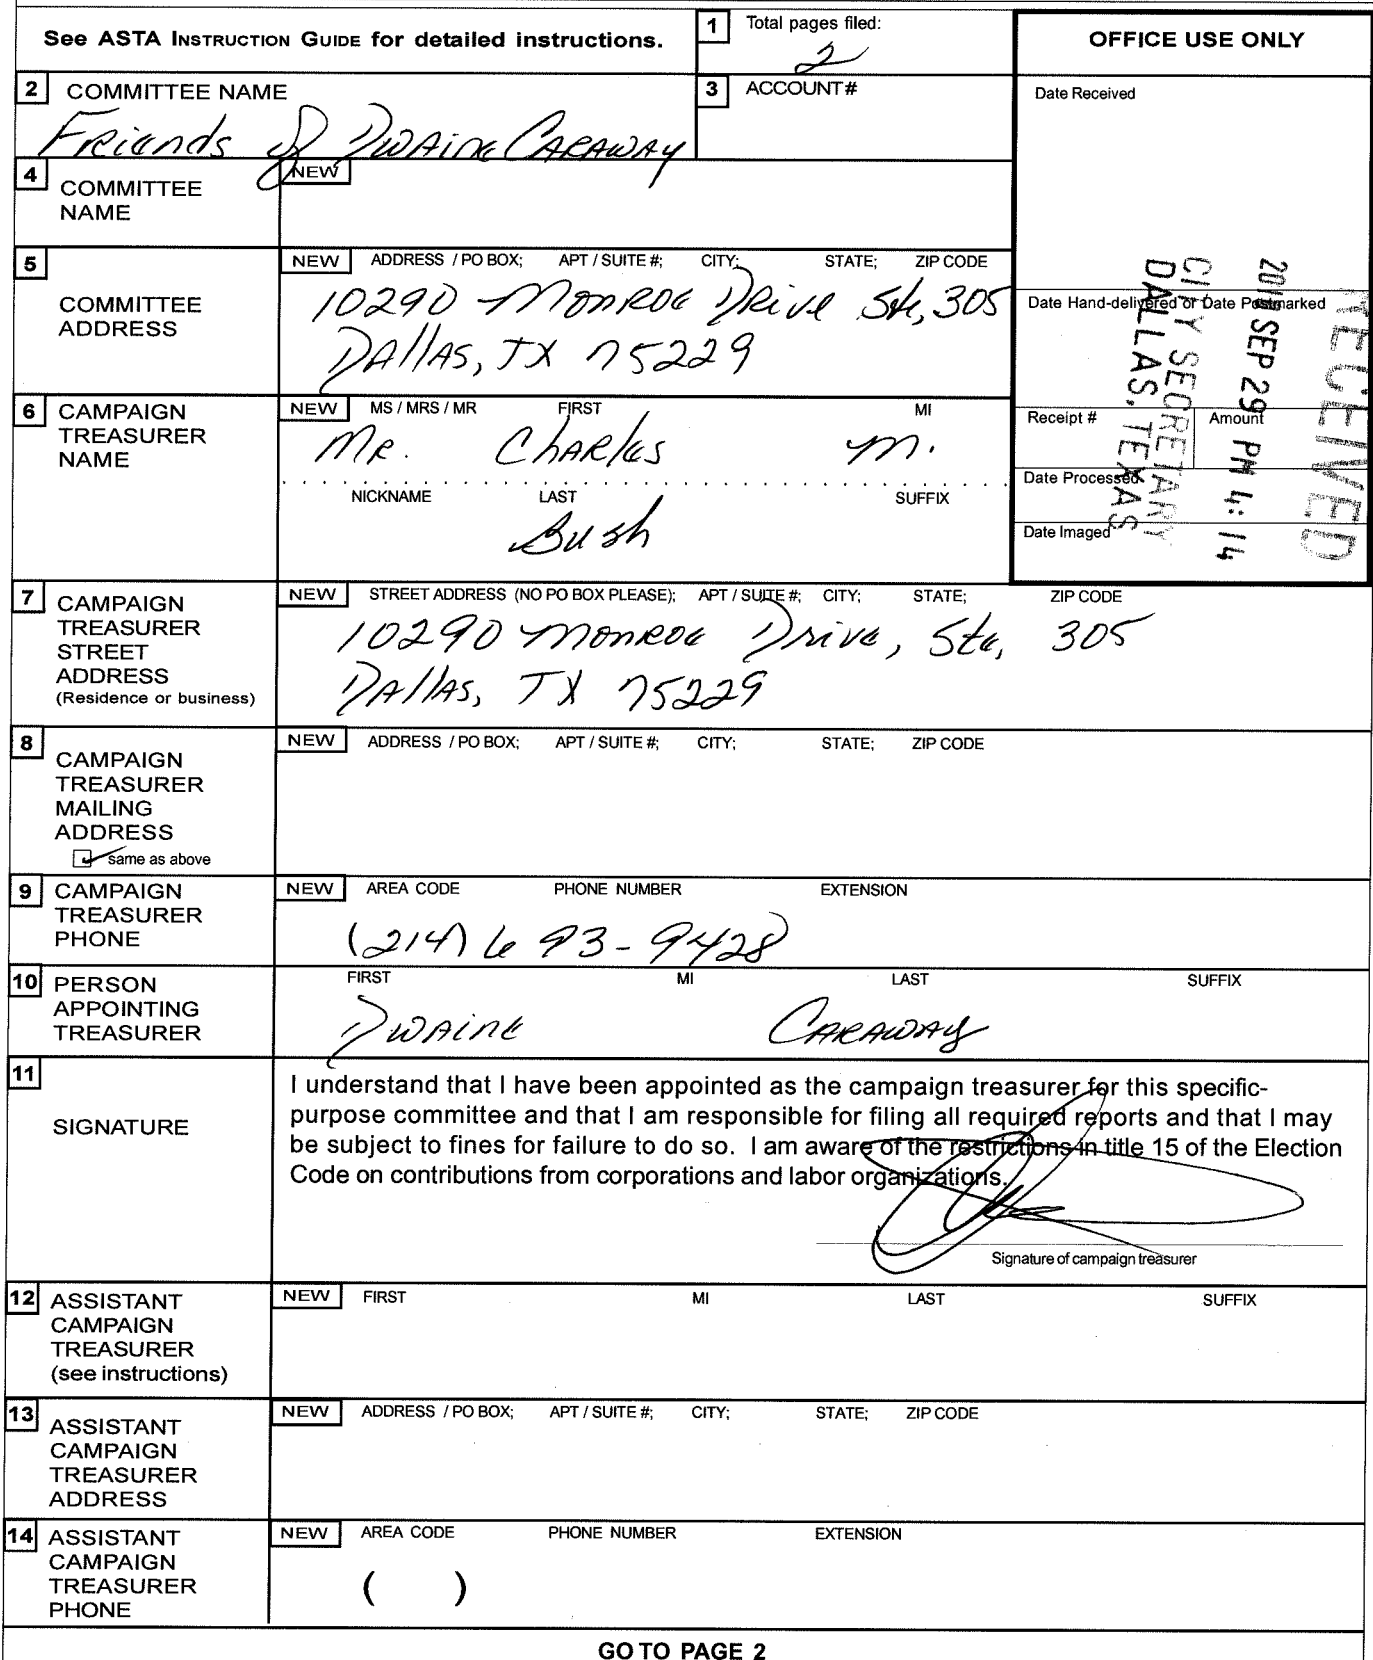 See ASTA INSTRUCTION GUIDE for detailed instructions.
1 Total pages filed:
2
OFFICE USE ONLY
2 COMMITTEE NAME
Friends of Dwaine Caraway
3 ACCOUNT #
Date Received
4 COMMITTEE NAME
NEW
5 COMMITTEE ADDRESS
NEW ADDRESS / PO BOX; APT / SUITE #; CITY; STATE; ZIP CODE
10290 Monroe Drive Ste, 305
Dallas, TX 75229
Date Hand-delivered or Date Postmarked
RECEIVED
SEP 29 PM 4:14
CITY SECRETARY
DALLAS, TEXAS
6 CAMPAIGN TREASURER NAME
NEW MS / MRS / MR FIRST MI
Mr. Charles M.
NICKNAME LAST SUFFIX
Bush
Receipt # Amount
Date Processed
Date Imaged
7 CAMPAIGN TREASURER STREET ADDRESS
(Residence or business)
NEW STREET ADDRESS (NO PO BOX PLEASE); APT / SUITE #; CITY; STATE; ZIP CODE
10290 Monroe Drive, Ste, 305
Dallas, TX 75229
8 CAMPAIGN TREASURER MAILING ADDRESS
same as above
NEW ADDRESS / PO BOX; APT / SUITE #; CITY; STATE; ZIP CODE
9 CAMPAIGN TREASURER PHONE
NEW AREA CODE PHONE NUMBER EXTENSION
(214) 693-9428
10 PERSON APPOINTING TREASURER
FIRST MI LAST SUFFIX
Dwaine Caraway
11 SIGNATURE
I understand that I have been appointed as the campaign treasurer for this specific-
purpose committee and that I am responsible for filing all required reports and that I may
be subject to fines for failure to do so. I am aware of the restrictions in title 15 of the Election
Code on contributions from corporations and labor organizations.
Signature of campaign treasurer
12 ASSISTANT CAMPAIGN TREASURER
(see instructions)
NEW FIRST MI LAST SUFFIX
13 ASSISTANT CAMPAIGN TREASURER ADDRESS
NEW ADDRESS / PO BOX; APT / SUITE #; CITY; STATE; ZIP CODE
14 ASSISTANT CAMPAIGN TREASURER PHONE
NEW AREA CODE PHONE NUMBER EXTENSION
( )
GO TO PAGE 2